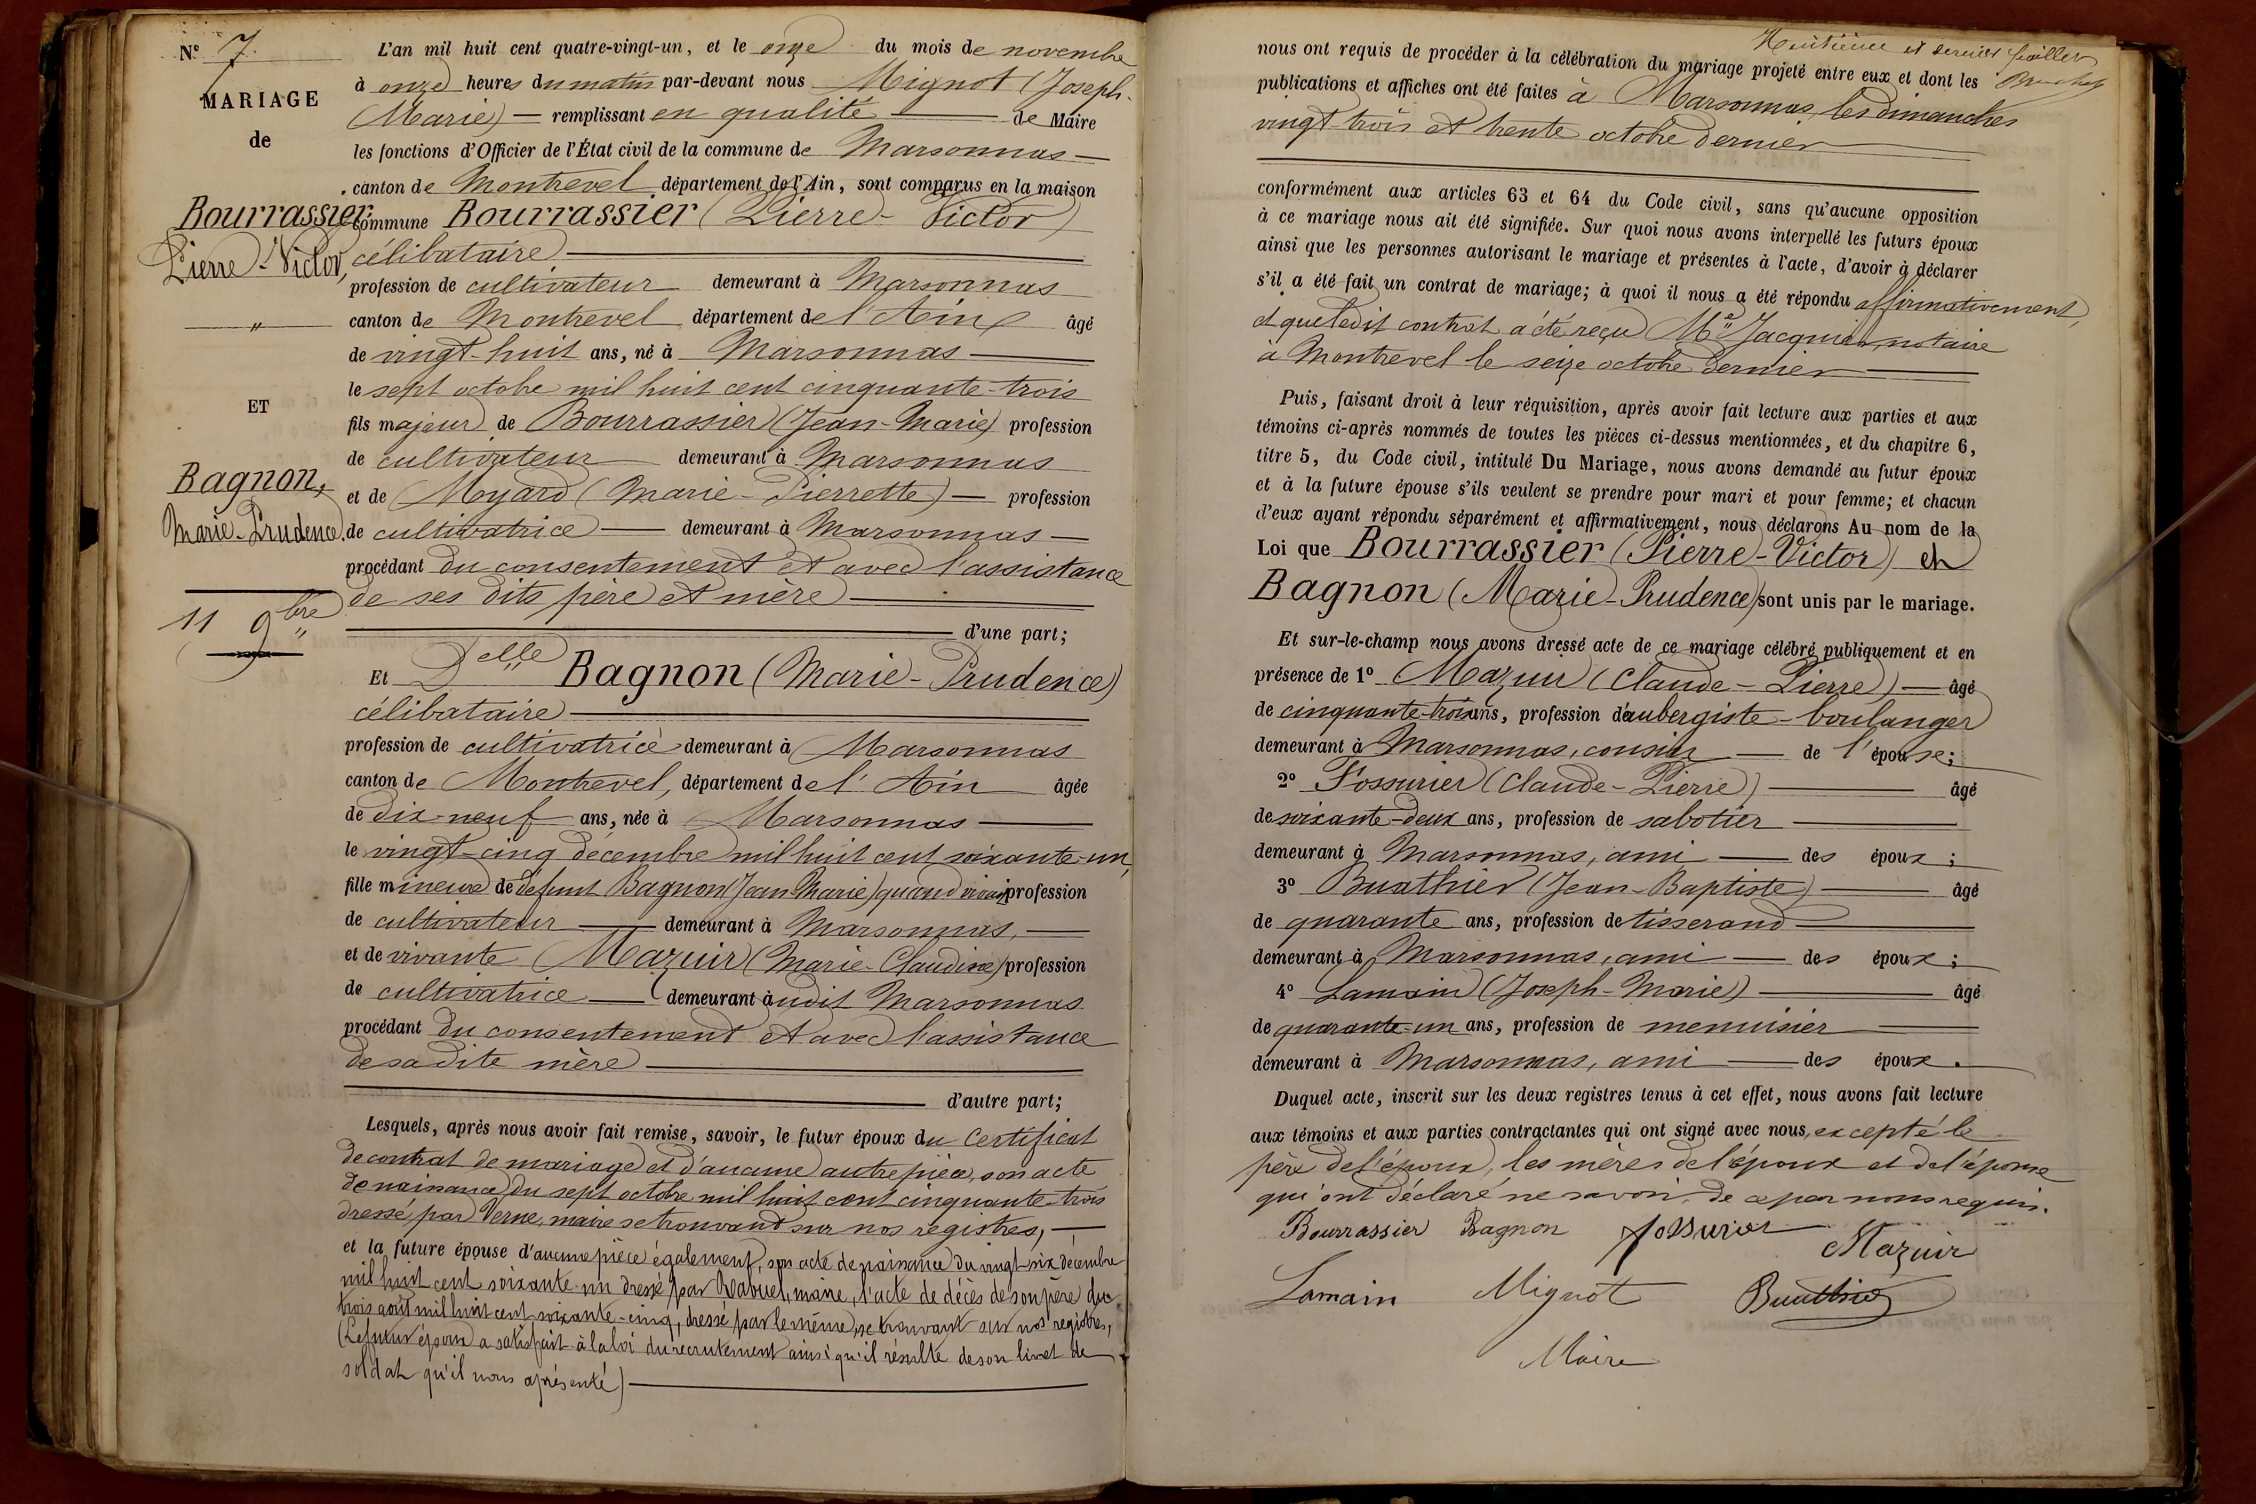 N° 7.
MARIAGE
de
Bourrassier,
Pierre-Victor,
"
ET
Bagnon,
Marie-Prudence.
11 9bre
L'an mil huit cent quatre-vingt-un, et le onze du mois de novembre
à onze heures du matin par-devant nous Mignot (Joseph-
Marie) — remplissant en qualité — de Maire
les fonctions d'Officier de l'État civil de la commune de Marsonnas —
canton de Montrevel département de l'Ain, sont comparus en la maison
commune Bourrassier (Pierre-Victor)
célibataire —
profession de cultivateur demeurant à Marsonnas
canton de Montrevel département de l'Ain âgé
de vingt-huit ans, né à Marsonnas —
le sept octobre mil huit cent cinquante-trois
fils majeur de Bourrassier (Jean-Marie) profession
de cultivateur demeurant à Marsonnas
et de Moyard (Marie-Pierrette) — profession
de cultivatrice — demeurant à Marsonnas —
procédant du consentement et avec l'assistance
de ses dits père et mère —
— d'une part;
Et Delle Bagnon (Marie-Prudence)
célibataire —
profession de cultivatrice demeurant à Marsonnas
canton de Montrevel, département de l'Ain âgée
de dix-neuf ans, née à Marsonnas —
le vingt-cinq décembre mil huit cent soixante-un,
fille mineure de défunt Bagnon (Jean Marie) quand vivait profession
de cultivateur — demeurant à Marsonnas, —
et de vivante Mazuir (Marie-Claudine) profession
de cultivatrice — demeurant àudit Marsonnas
procédant du consentement et avec l'assistance
de sa dite mère —
— d'autre part;
Lesquels, après nous avoir fait remise, savoir, le futur époux du certificat
de contrat de mariage et d'aucune autre pièce, son acte
de naissance du sept octobre mil huit cent cinquante-trois
dressé par Verne, maire se trouvant sur nos registres, —
et la future épouse d'aucune pièce également, son acte de naissance du vingt-six décembre
mil huit cent soixante-un dressé par maire, l'acte de décès de son père du
trois août mil huit cent soixante-cinq, dressé par le même, se trouvant sur nos registres,
(Le futur époux a satisfait à la loi du recrutement ainsi qu'il résulte de son livret de
soldat qu'il nous a présenté) —
et dernier feuillet
nous ont requis de procéder à la célébration du mariage projeté entre eux et dont les
publications et affiches ont été faites à Marsonnas, les dimanches
vingt-trois et trente octobre dernier —
conformément aux articles 63 et 64 du Code civil, sans qu'aucune opposition
à ce mariage nous ait été signifiée. Sur quoi nous avons interpellé les futurs époux
ainsi que les personnes autorisant le mariage et présentes à l'acte, d'avoir à déclarer
s'il a été fait un contrat de mariage; à quoi il nous a été répondu affirmativement,
et que ledit contrat a été reçu Me Jacquier, notaire
à Montrevel le seize octobre dernier —
Puis, faisant droit à leur réquisition, après avoir fait lecture aux parties et aux
témoins ci-après nommés de toutes les pièces ci-dessus mentionnées, et du chapitre 6,
titre 5, du Code civil, intitulé Du Mariage, nous avons demandé au futur époux
et à la future épouse s'ils veulent se prendre pour mari et pour femme; et chacun
d'eux ayant répondu séparément et affirmativement, nous déclarons Au nom de la
Loi que Bourrassier (Pierre-Victor) et
Bagnon (Marie-Prudence) sont unis par le mariage.
Et sur-le-champ nous avons dressé acte de ce mariage célébré publiquement et en
présence de 1° Mazuir (Claude-Pierre) — âgé
de cinquante-trois ans, profession d'aubergiste-boulanger
demeurant à Marsonnas, cousin — de l'épouse;
2° Fossurier (Claude-Pierre) — âgé
de soixante-deux ans, profession de sabotier —
demeurant à Marsonnas, ami — des époux;
3° Buathier (Jean-Baptiste) — âgé
de quarante ans, profession de tisserand —
demeurant à Marsonnas, ami — des époux;
4° Lamain (Joseph-Marie) — âgé
de quarante-un ans, profession de menuisier —
demeurant à Marsonnas, ami — des époux.
Duquel acte, inscrit sur les deux registres tenus à cet effet, nous avons fait lecture
aux témoins et aux parties contractantes qui ont signé avec nous, excepté le
père de l'époux, les mères de l'époux et de l'épouse
qui ont déclaré ne savoir, de ce par nous requis.
Bourrassier Bagnon fossurier Mazuir
Lamain Mignot Buathier
Maire